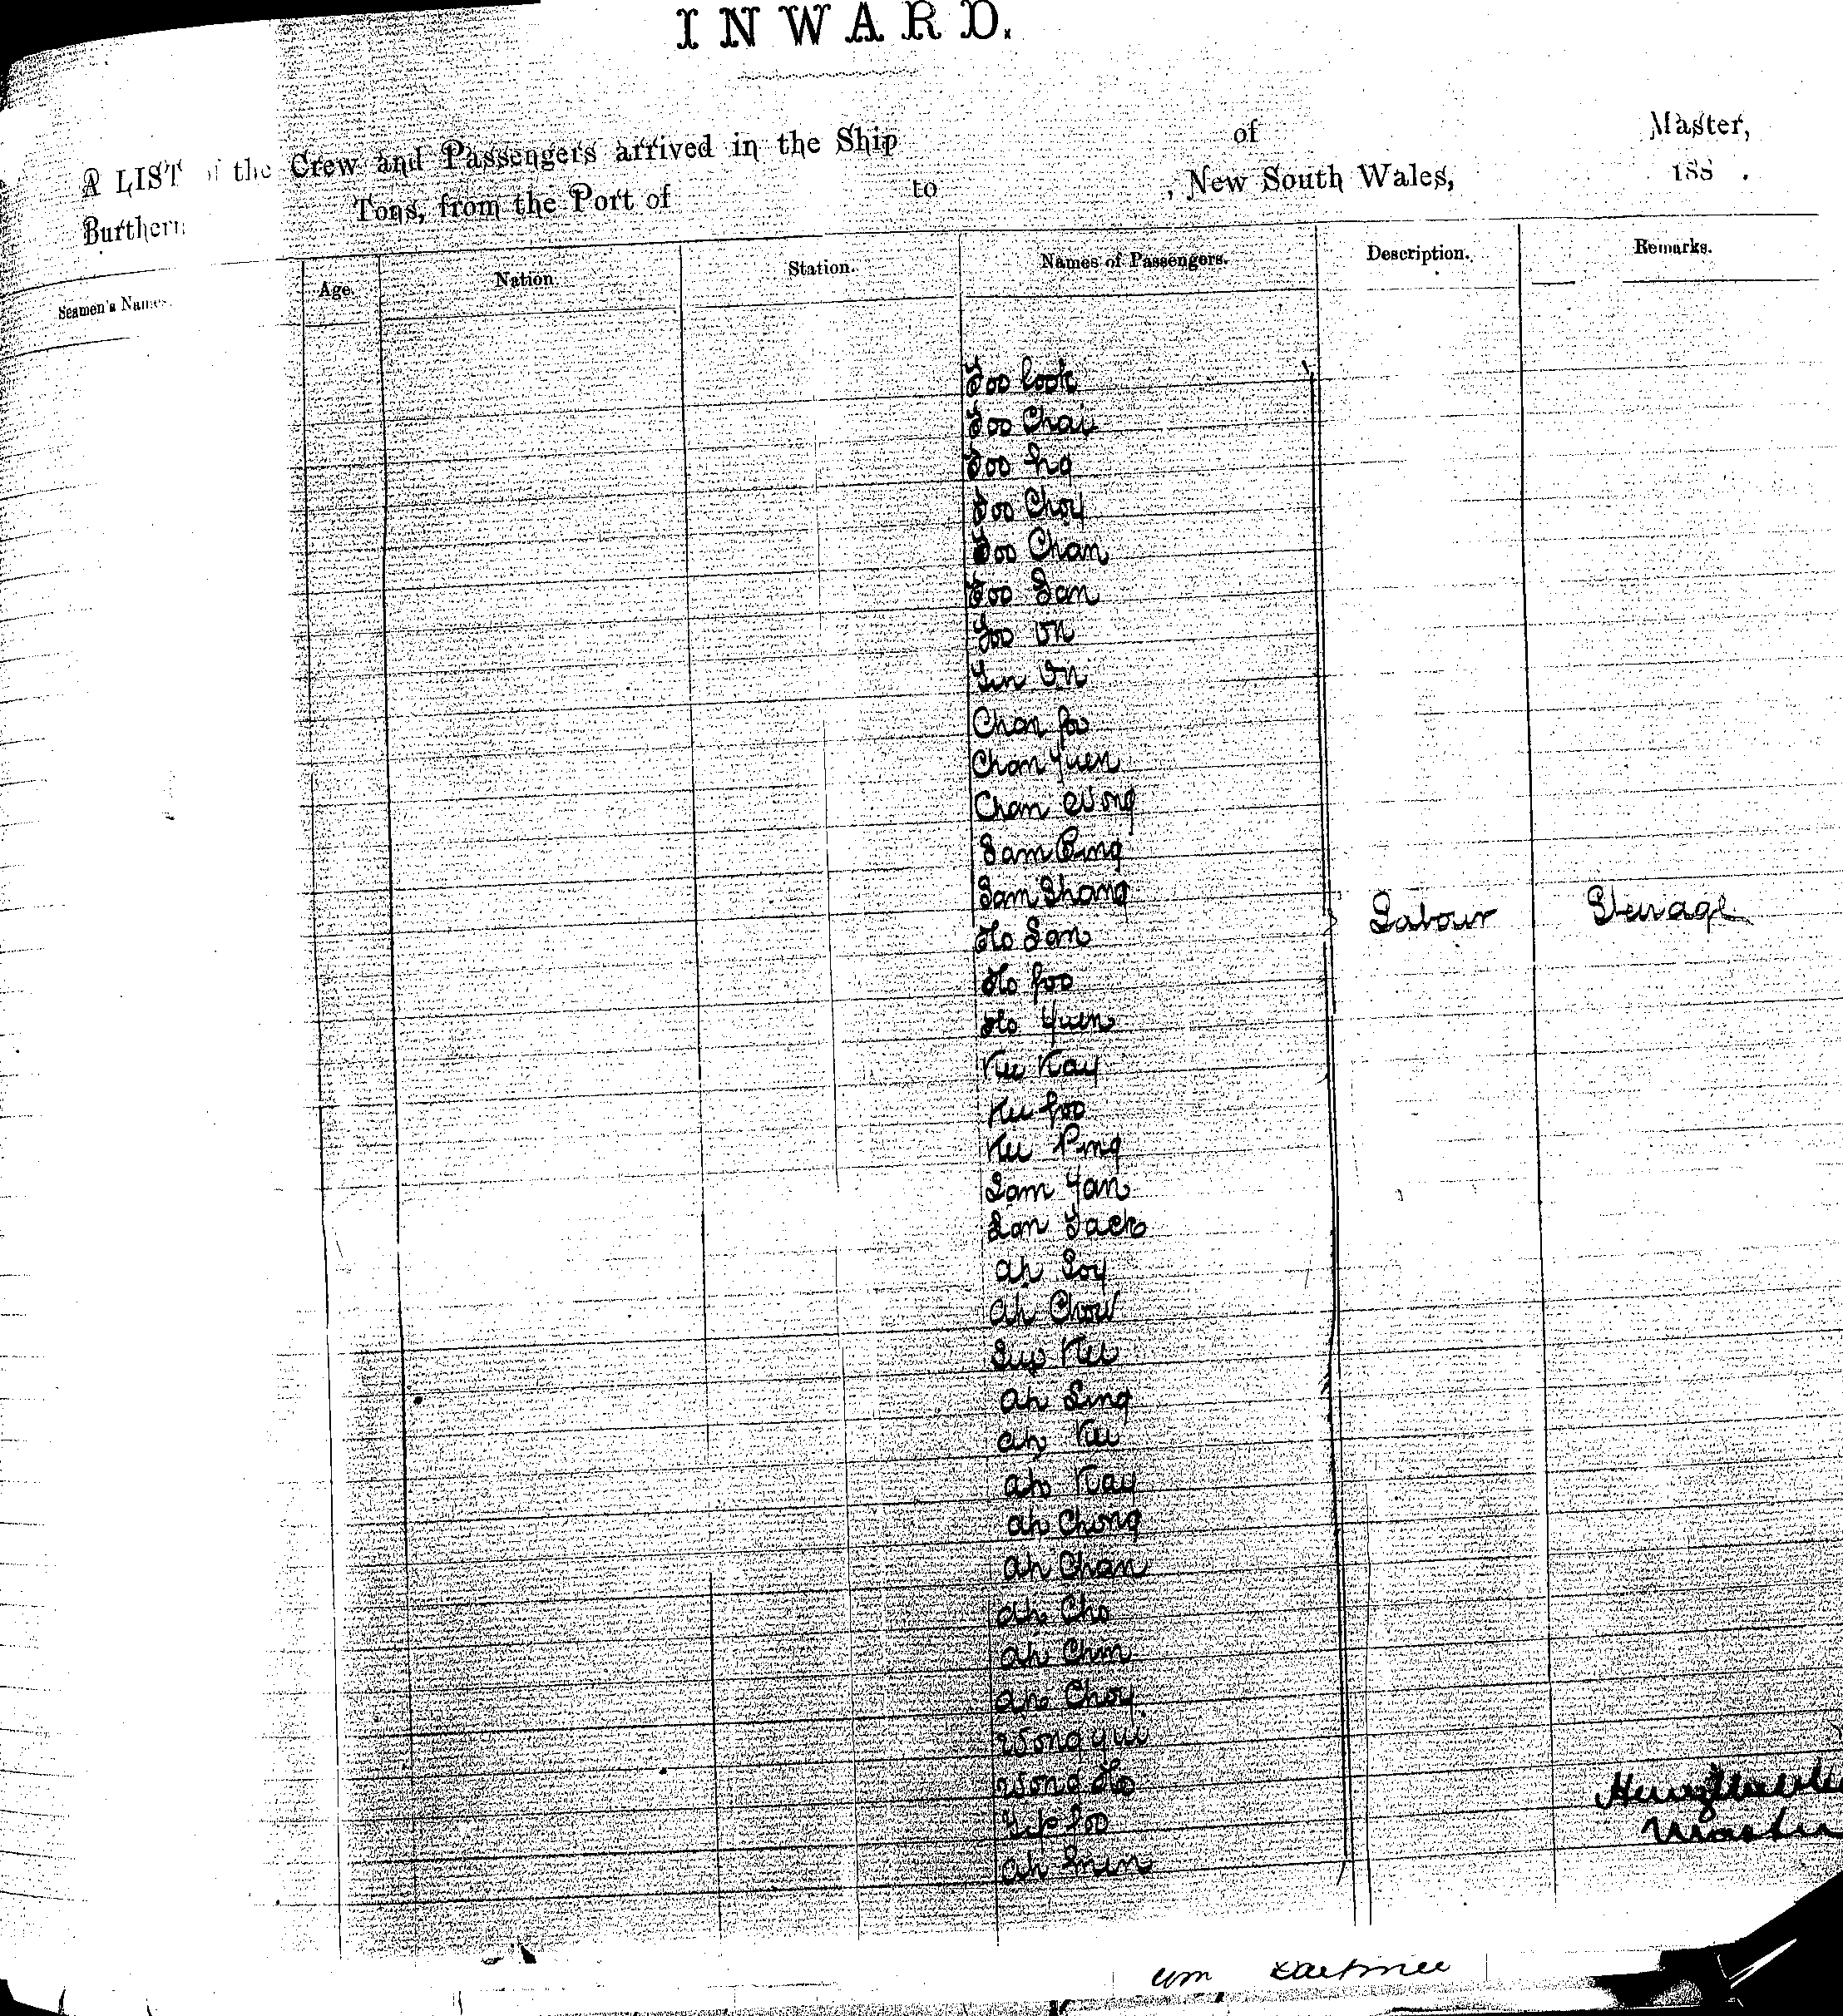 INWARD.
A LIST of the Crew and Passengers arrived in the Ship of Master,
Burthen Tons, from the Port of to , New South Wales, 188 .
Seamen's Names. Age. Nation. Station. Names of Passengers. Description. Remarks.
Foo Cook
Foo Chai
Foo
Foo Choy
Foo Chan
Foo San
Foo On
On
Chan foo
Chan Yuen
Chan Wong
Sam Ping
Sam Shang
Labour Steerage
Ho San
Ho foo
Ho Yuen
Kee Kay
Kee foo
Kee Ping
Sam Yan
San Jack
Ah Soy
Ah Chow
Kee
Ah Sing
Ah Kee
Ah Kay
Ah Chong
Ah Chan
Ah Cho
Ah Chin
Ah Choy
Wong
Wong Ho
Yip foo
Master
Ah